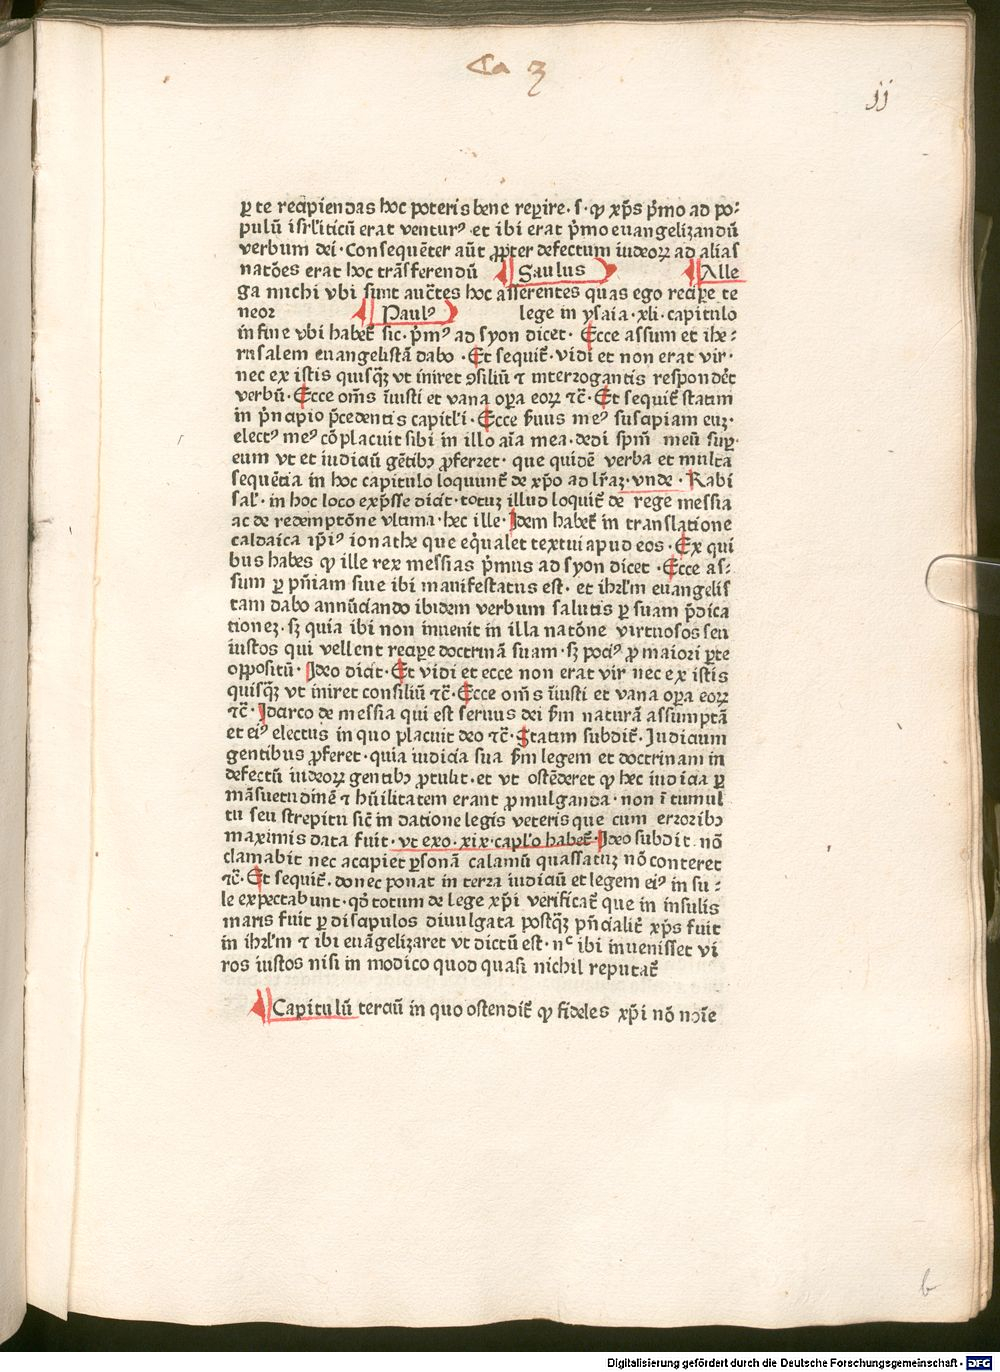 Ca 3
jj
ꝑ te recipiendas hoc poteris bene reꝑire · s · ꝙ xp̄s p̄mo ad po⸗
pulū isrl̓iticū erat venturꝰ · et ibi erat p̄mo euangelizandū
verbum dei · Consequēter aūt ꝓpter defectum iudeoꝝ ad alias
natōes erat hoc trāsferendū Saulus Alle
ga michi vbi sunt auctēs hoc asserentes quas ego reciꝑe te
neor Paulꝰ lege in ysaia · xli · capitulo
in fine vbi habet̄ sic · p̄mꝰ ad syon dicet · Ecce assum et ihe⸗
rusalem euangelistā dabo · Et sequit̄ · vidi et non erat vir ·
nec ex istis quisqꝫ vt iniret ꝯsiliū ⁊ interrogantis respondēt
verbū · Ecce om̄s iīusti et vana oꝑa eoꝝ ⁊c̄ · Et sequit̄ statim
in p̄ncipio p̄cedentis capitl̓i · Ecce s̄uus meꝰ suscipiam euꝫ ·
electꝰ meꝰ cōplacuit sibi in illo aīa mea · dedi spm̄ meū suꝑ
eum vt et iudiciū gētibꝫ ꝓferret · que quidē verba et multa
sequētia in hoc capitulo loquunt̄ de xp̄o ad lr̄aꝫ · vnde · Rabi
sal̓ · in hoc loco exp̄sse dicit · totuꝫ illud loquit̄ de rege messia
ac de redemptōne vltima · hec ille · Idem habet̄ in translatione
caldaica ip̄iꝰ ionathe que eq̄ualet textui apud eos · Ex qui
bus habes ꝙ ille rex messias p̄mus ad syon dicet · Ecce as⸗
sum ꝑ pn̄iam siue ibi manifestatus est · et ihrl̓m euangelis
tam dabo annūciando ibidem verbum salutis ꝑ suam p̄dica
tioneꝫ · sꝫ quia ibi non inuenit in illa natōne virtuosos seu
iustos qui vellent reciꝑe doctrinā suam · sꝫ pociꝰ ꝓ maiori ꝑte
oppositū · Ideo dicit · Et vidi et ecce non erat vir nec ex istis
quisqꝫ vt iniret consiliū ⁊c̄ · Ecce om̄s iīusti et vana oꝑa eoꝝ
⁊c̄ · Idcirco de messia qui est seruus dei s̄m naturā assumptā
et eiꝰ electus in quo placuit deo ⁊c̄ · Statim subdit̄ · Iudicium
gentibus ꝓferet · quia iudicia sua s̄m legem et doctrinam in
defectū iudeoꝝ gentibꝫ ꝓtulit · et vt ostēderet ꝙ hec iudicia ꝑ
māsuetudinē ⁊ hūilitatem erant ꝓmulganda · non ī tumul
tu seu strepitu sic̄ in datione legis veteris que cum erroribꝫ
maximis data fuit · vt exo · xix · capl̓o habet̄ · Ideo subdit · nō
clamabit nec accipiet ꝑsonā calamū quassatuꝫ nō conteret
⁊c̄ · Et sequit̄ · donec ponat in terra iudiciū et legem eiꝰ in su⸗
le expectabunt · qd̄ totum de lege xp̄i verificat̄ que in insulis
maris fuit ꝑ discipulos diuulgata postqꝫ pn̄cialit̄ xp̄s fuit
in ihrl̓m ⁊ ibi euāgelizaret vt dictū est · nᶜ ibi inuenisset vi
ros iustos nisi in modico quod quasi nichil reputat̄
Capitulū terciū in quo ostendit̄ ꝙ fideles xp̄i nō noīe
b
Digitalisierung gefördert durch die Deutsche Forschungsgemeinschaft · DFG